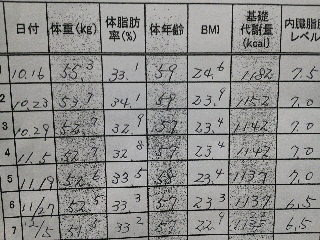 日付 体重(kg) 体脂肪率(%) 体年齢 BMI 基礎代謝量(kcal) 内臓脂肪レベル
1 10.16 55.3 33.1 59 24.6 1182 7.5
2 10.23 53.7 34.1 59 23.9 1152 7.0
3 10.29 52.7 32.9 57 23.4 1142 7.0
4 11.5 52.7 32.8 57 23.4 1142 7.0
5 11/19 52.6 33.5 58 23.4 1137 7.0
6 11/27 52.5 33.3 57 23.3 1137 6.5
7 12/5 33.2 57 22.9 6.5